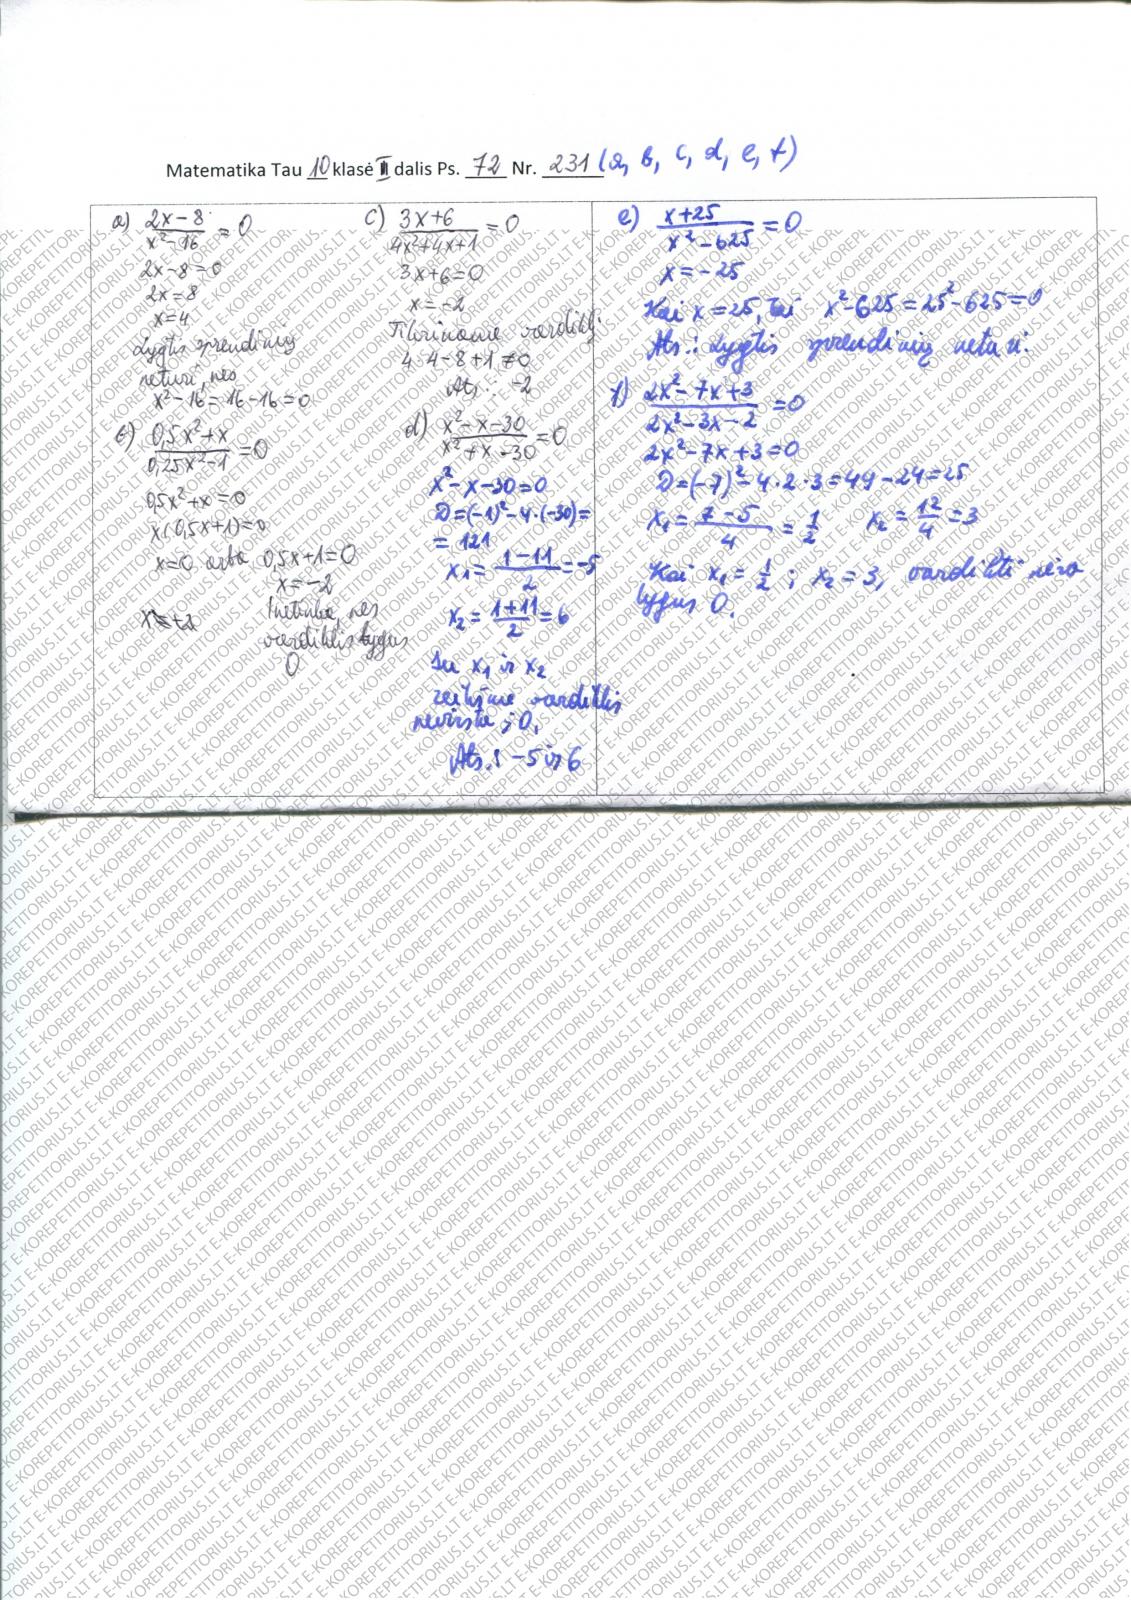 Matematika Tau 10 klasė II dalis Ps. 72 Nr. 231 (a, b, c, d, e, f)
a) (2x-8)/(x²-16) = 0
2x-8=0
2x=8
x=4
Lygtis sprendinių
neturi, nes
x²-16=16-16=0
b) (0,5x²+x)/(0,25x²-1) = 0
0,5x²+x=0
x(0,5x+1)=0
x=0 arba 0,5x+1=0
x=-2
netinka, nes
vardiklis lygus
0
c) (3x+6)/(4x²+4x+1) = 0
3x+6=0
x=-2
Tikriname vardiklį:
4·4-8+1≠0
Ats.: -2
d) (x²-x-30)/(x²+x-30) = 0
x²-x-30=0
D=(-1)²-4·(-30)=
=121
x₁=(1-11)/2=-5
x₂=(1+11)/2=6
Su x₁ ir x₂
reikšme vardiklis
nevirsta į 0.
Ats.: -5 ir 6
e) (x+25)/(x²-625) = 0
x=-25
Kai x=25, tai x²-625=25²-625=0
Ats.: Lygtis sprendinių neturi.
f) (2x²-7x+3)/(2x²-3x-2) = 0
2x²-7x+3=0
D=(-7)²-4·2·3=49-24=25
x₁=(7-5)/4=1/2 x₂=12/4=3
Kai x₁=1/2; x₂=3, vardiklis nėra
lygus 0.
E-KOREPETITORIUS.LT